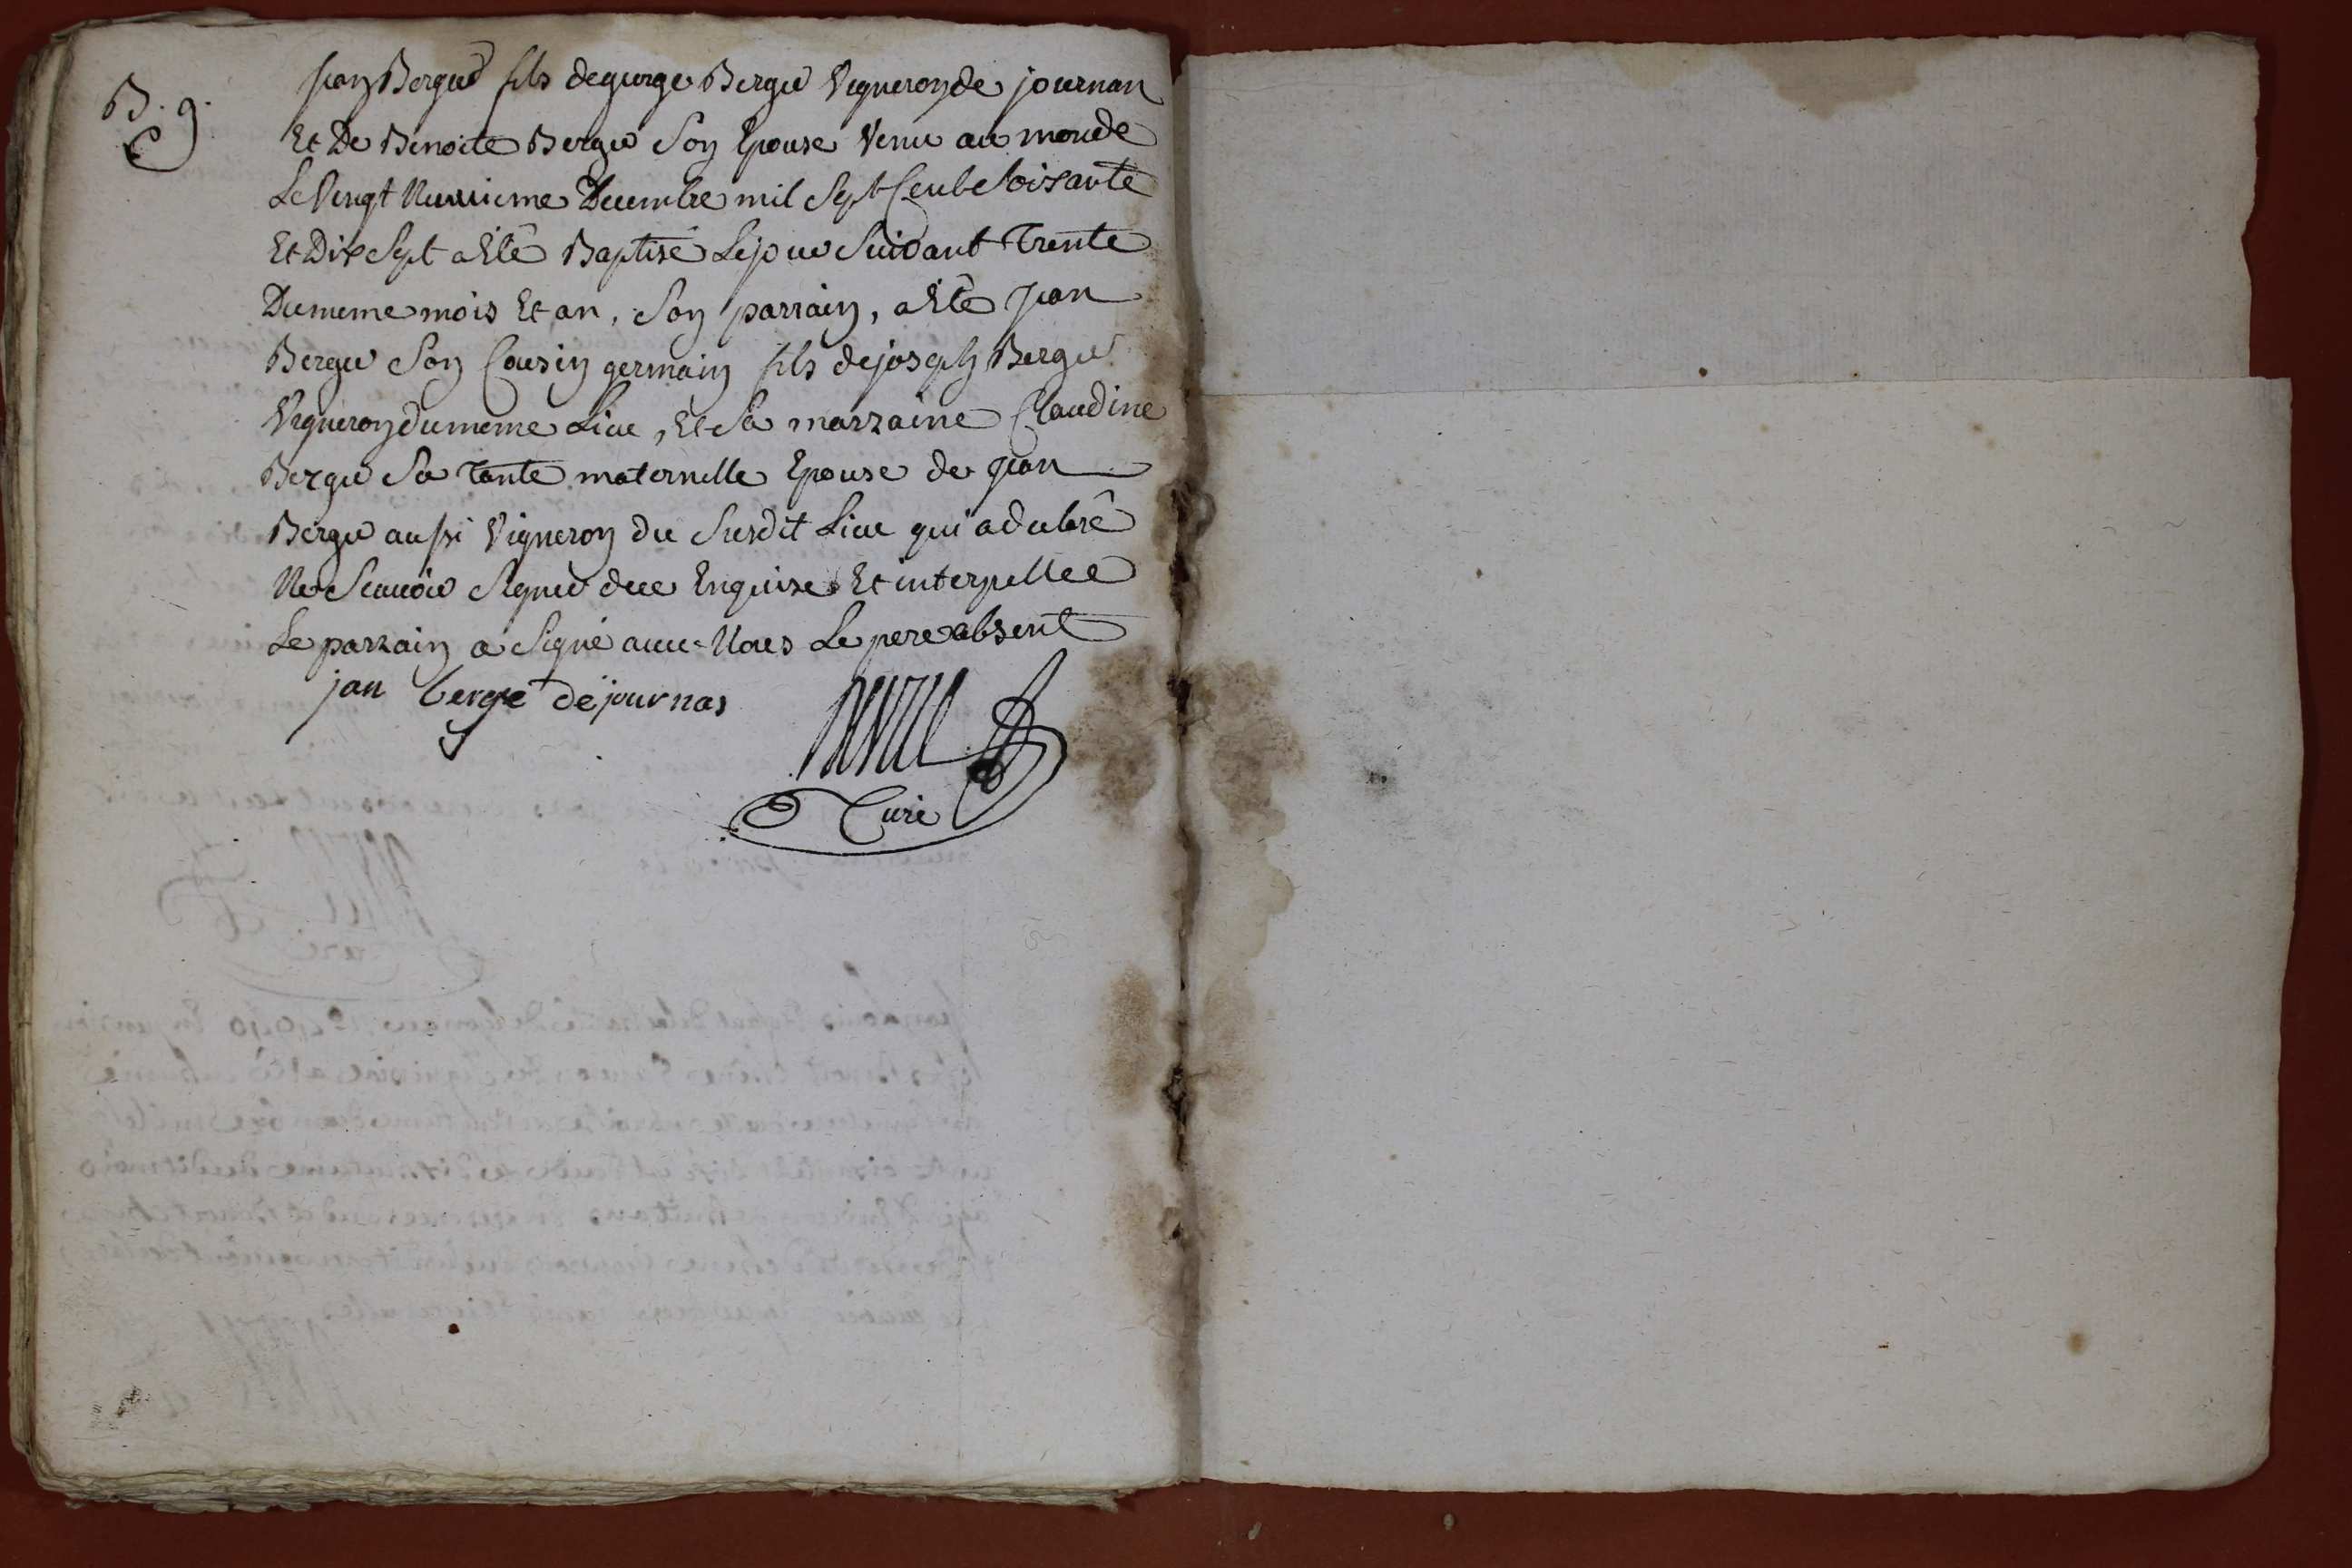 B. 9.
Jean Berger fils de george Berger Vigneron de journan
Et De Benoite Berger Son Epouse Venu au monde
Le Vingt Neuvieme Decembre mil Sept Cent Soixante
Et Dix Sept a Eté Baptisé Le jour Suivant Trente
Du meme mois Et an, Son parrain, a Eté Jean
Berger Son Cousin germain fils de joseph Berger
Vigneron du meme Lieu, Et Sa marraine Claudine
Berger Sa Tante maternelle Epouse de Jean
Berger aussi Vigneron du Susdit Lieu qui a declaré
Ne Scavoir Signer de ce Enquise Et interpellee
Le parrain a Signé avec Nous Le pere absent
jan bergé de journas
Curé